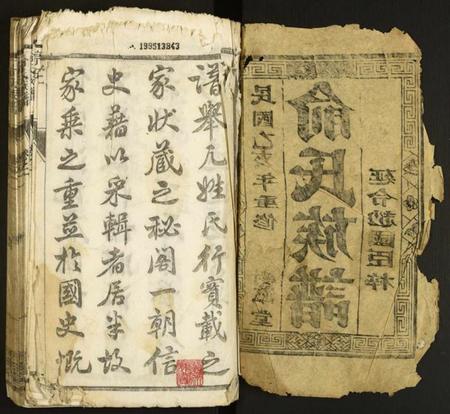 199513843
譜舉凡姓氏行實載之
家狀藏之秘閣一朝信
史藉以采輯者居半故
家乘之重並於國史慨
民國乙亥年重修
堂
俞氏族譜
國臣梓